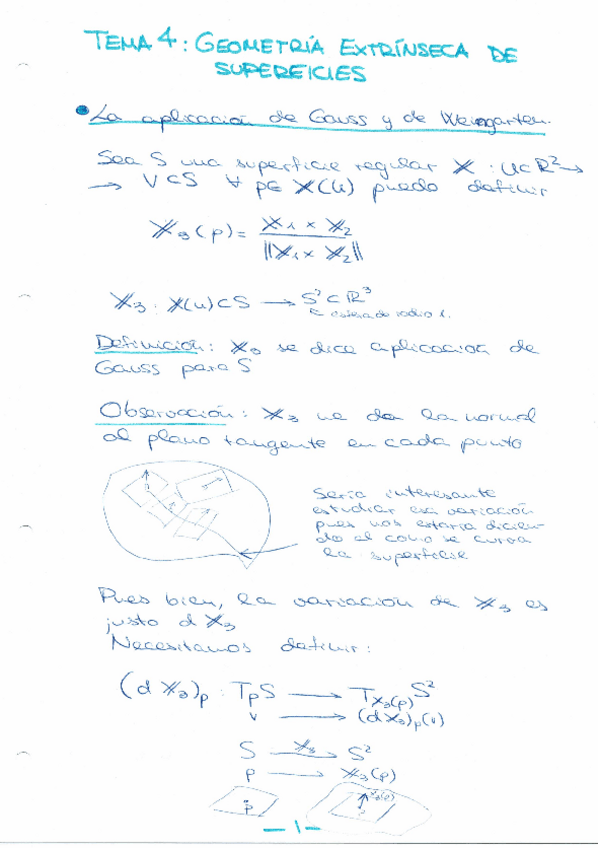 TEMA 4: GEOMETRÍA EXTRÍNSECA DE
SUPERFICIES
La aplicación de Gauss y de Weingarten.
Sea S una superficie regular X : U⊂R² →
→ V⊂S ∀ p∈ X(U) puedo definir
X₃(p) = X₁ × X₂ / ||X₁ × X₂||
X₃ : X(U)⊂S → S²⊂R³
esfera de radio 1.
Definición: X₃ se dice aplicación de
Gauss para S
Observación: X₃ me da la normal
al plano tangente en cada punto
Sería interesante
estudiar esa variación
pues nos estaría dicien-
do el como se curva
la superficie
Pues bien, la variación de X₃ es
justo d X₃
Necesitamos definir:
(d X₃)ₚ : TₚS → T_X₃(p) S²
v → (d X₃)ₚ(v)
S —X₃→ S²
p → X₃(p)
p
X₃(p)
— 1 —